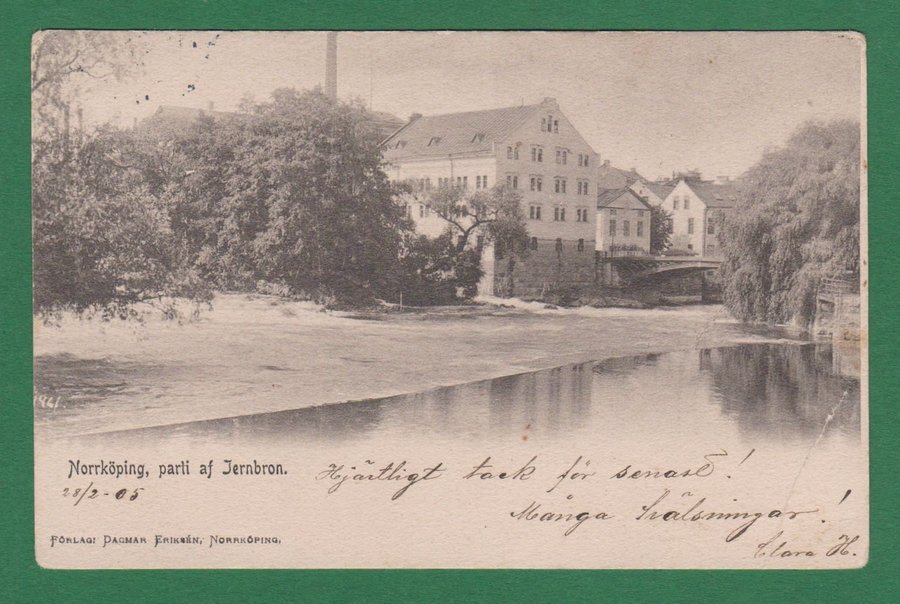 1461.
Norrköping, parti af Jernbron.
28/2-05
Hjärtligt tack för senast!
Många hälsningar!
Clara H.
Förlag: Dagmar Eriksén, Norrköping.